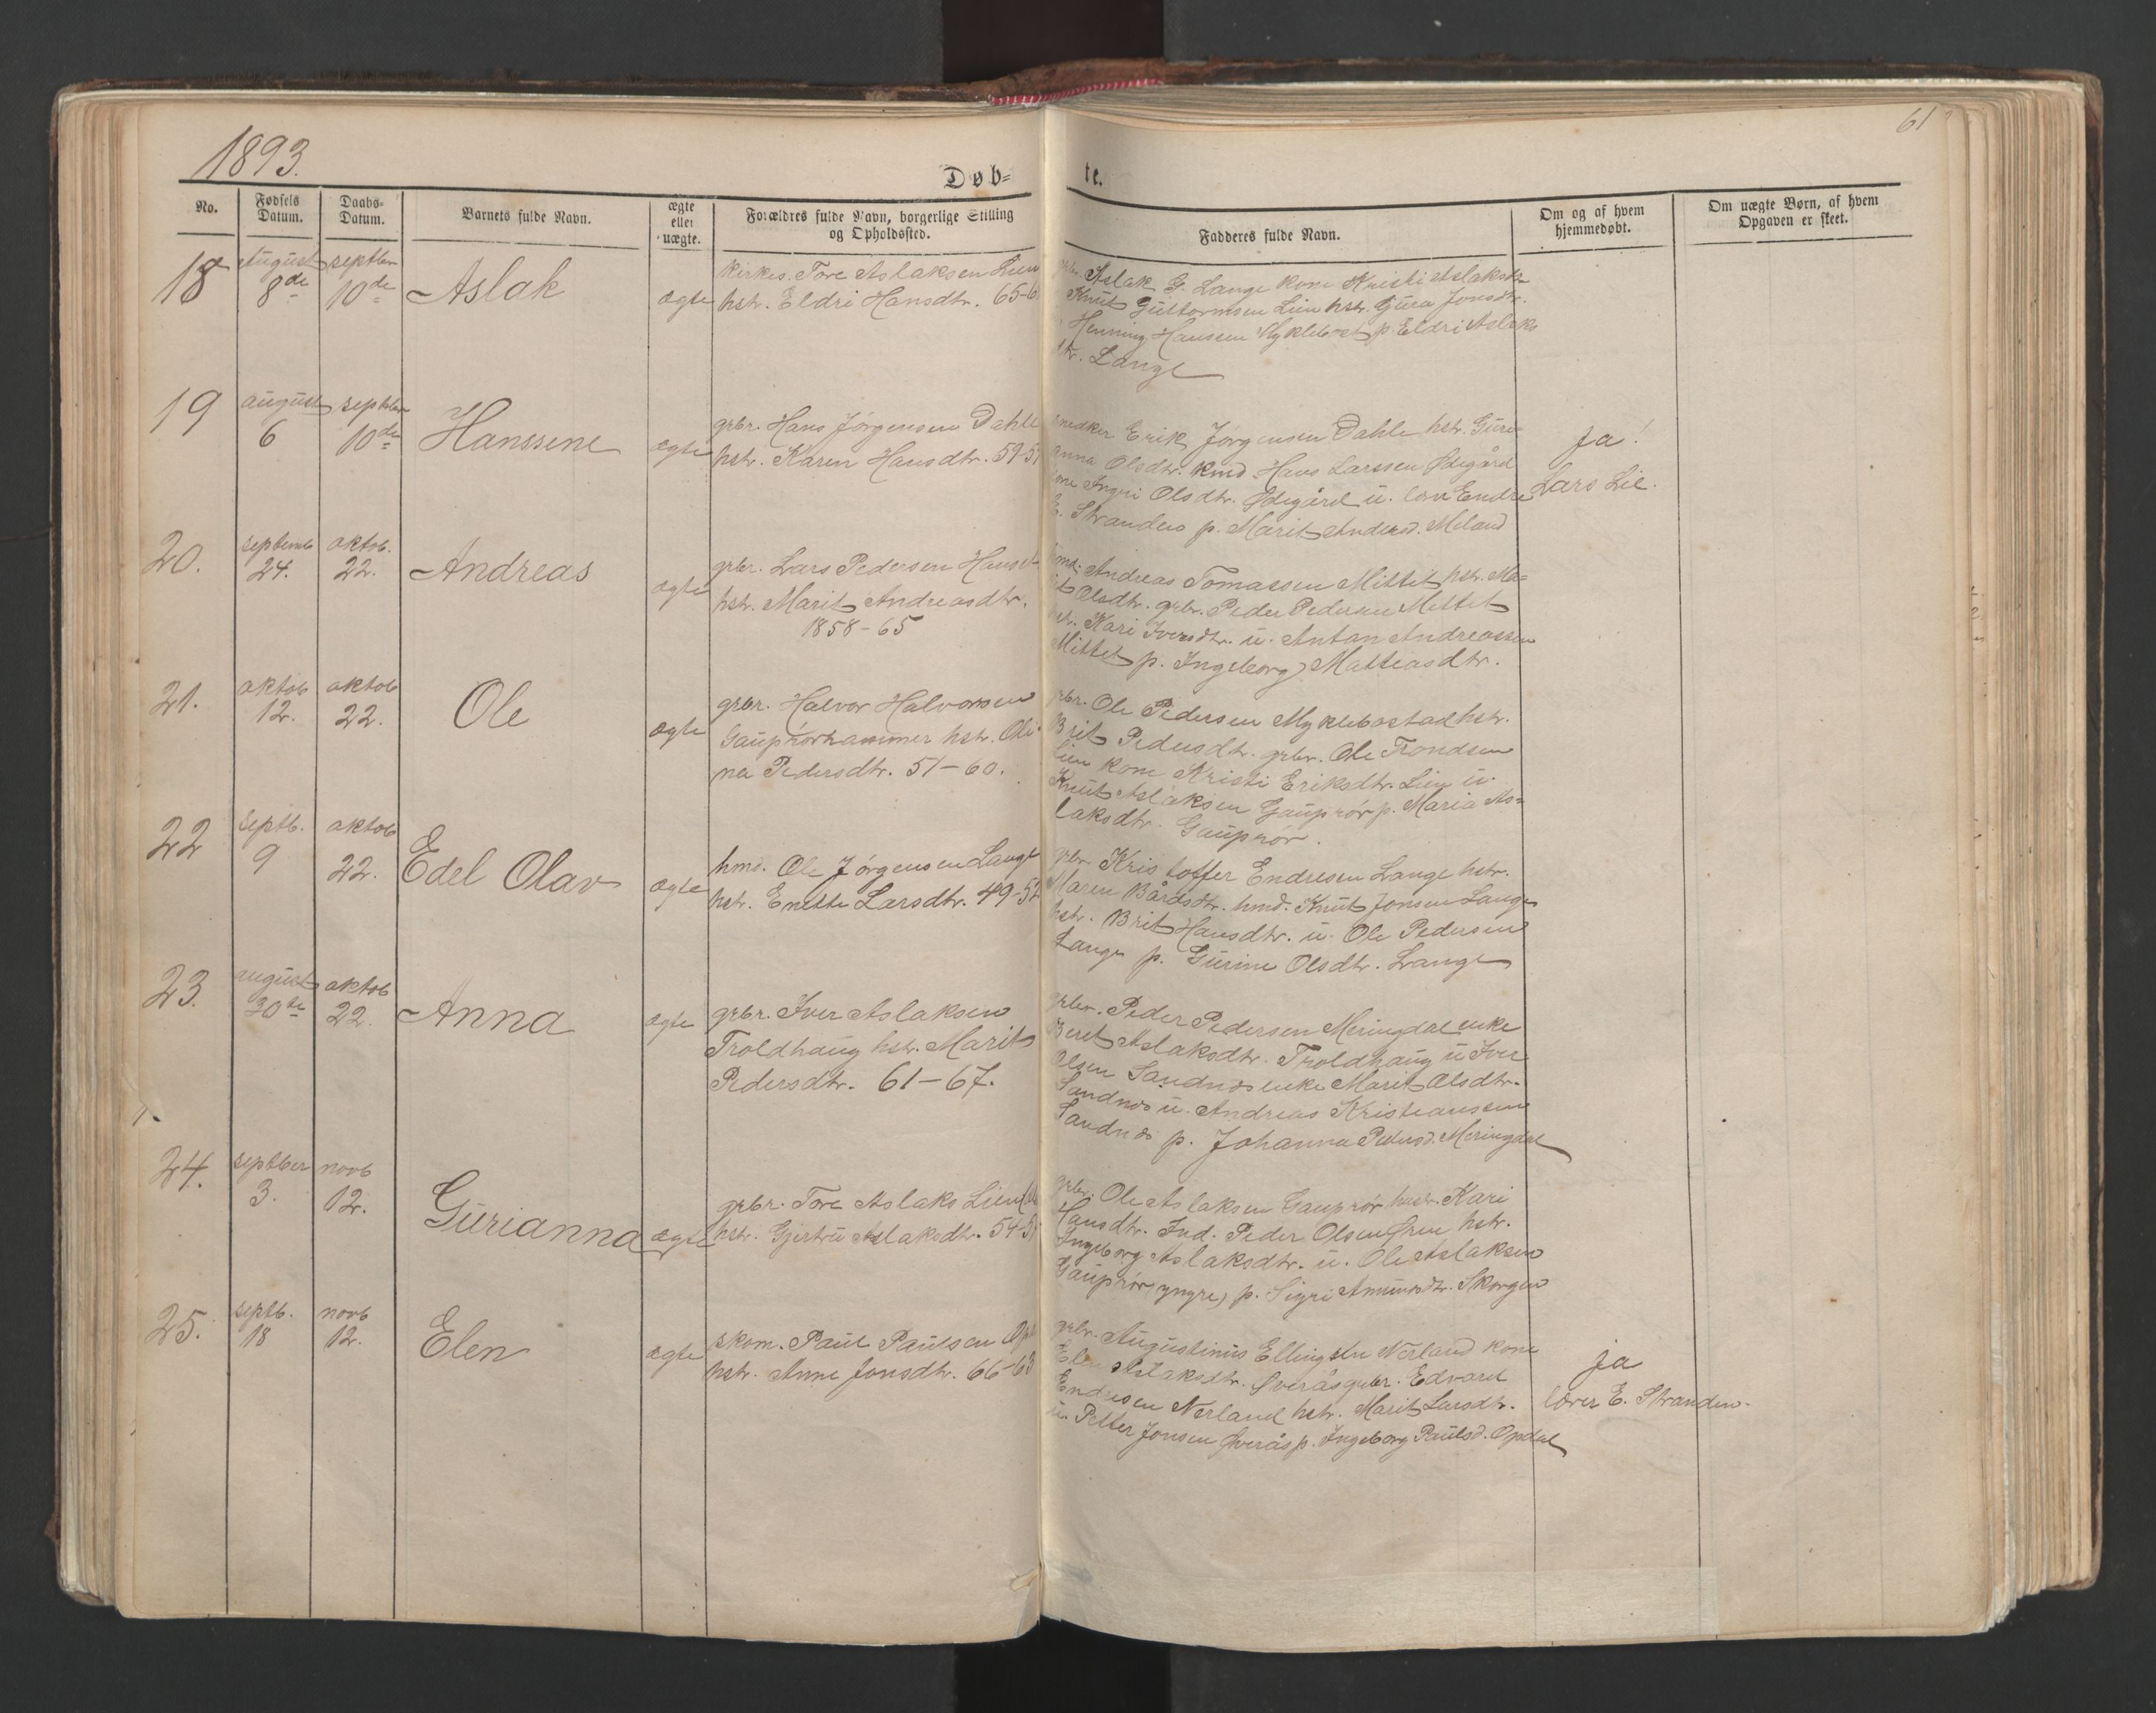 1893.
61
Døb=
te.
No.
Fødsels
Datum.
Daabs-
Datum.
Barnets fulde Navn.
ægte
eller
uægte.
Forældres fulde Navn, borgerlige Stilling
og Opholdssted.
Fadderes fulde Navn.
Om og af hvem
hjemmedøbt.
Om uægte Børn, af hvem
Opgaven er skeet.
18
august
8de
septbr
10de
Aslak
ægte
kirkes. Tore Aslaksen Lien
hstr. Eldri Hansdtr. 65-6
grbr. Aslak G. Lange kone Kristi Aslaksdtr
Knut Guttormsen Lien hstr. Gura Jonsdtr.
Henning Hansen Myklebost p. Eldri Aslaks
dtr. Lange
19
august
6
septbr
10de
Hanssene
ægte
grbr. Hans Jørgensen Dahle
hstr. Karen Hansdtr. 59-5
snedker Erik Jørgensen Dahle hstr. Guri-
anna Olsdtr. kmd. Hans Larssen Ødegård
kone Ingri Olsdtr. Ødegård u. lærer Endre
E. Stranden p. Marit Andersd. Meland
ja!
Lars Lie.
20.
septemb
24.
oktob.
22.
Andreas
ægte
grbr. Lars Pedersen Hauset
hstr. Marit Andreasdtr.
1858-65
hmd. Andreas Tomassen Mittet hstr. Ma=
rit Olsdtr. grbr. Peder Pedersen Mittet
hstr. Kari Iversdtr. u. Anton Andreassen
Mittet p. Ingeborg Mattiasdtr.
21.
oktob
12.
oktob
22.
Ole
ægte
grbr. Halvor Halvorsen
Gauprørhammer hstr. Oli-
na Pedersdtr. 51-60.
grbr. Ole Pedersen Myklebostad hstr.
Brit Pedersdtr. grbr. Ole Trondsen
Lien kone Kristi Eriksdtr. Lien u.
Knut Aslaksen Gauprør p. Maria As=
laksdtr. Gauprør.
22
septb.
9
oktob
22.
Edel Olav
ægte
hmd. Ole Jørgensen Lange
hstr. Enette Larsdtr. 49-52
grbr. Kristoffer Endresen Lange hstr.
Maren Bårdsdtr. hmd. Knut Jonsen Lange
hstr. Brit Hansdtr. u. Ole Pedersen
Lange p. Gurine Olsdtr. Lange
23.
august
30te
oktob
22.
Anna
ægte
grbr. Iver Aslaksen
Troldhaug hstr. Marit
Pedersdtr. 61-67.
grbr. Peder Pedersen Meringdal enke
Beret Aslaksdtr. Troldhaug u Iver
Olsen Sandnes enke Marit Olsdtr.
Sandnes u. Andreas Kristianssen
Sandnes p. Johanna Pedersd. Meringdal
24.
septber
3.
novb
12.
Gurianna
ægte
grbr. Tore Aslaks Lien
hstr. Gjertru Aslaksdtr. 54-5
grbr. Ole Aslaksen Gauprør hustr. Kari
Hansdtr. Ind. Peder Olsen Øren hstr.
Ingeborg Aslaksdtr. u. Ole Aslaksen
Gauprør (yngre) p. Sigri Amundsdtr. Skorgen
25.
septb.
18
novb
12.
Elen
ægte
skom. Paul Paulsen Opd
hstr. Anne Jonsdtr. 66-63
grbr. Augustinus Ellingsen Nerland kone
Elen Aslaksdtr. Øverås grbr. Edvard
Endresen Nerland hstr. Marit Larsdtr.
u. Petter Jonsen Øverås p. Ingeborg Paulsd. Opdal
ja
lærer E. Stranden.